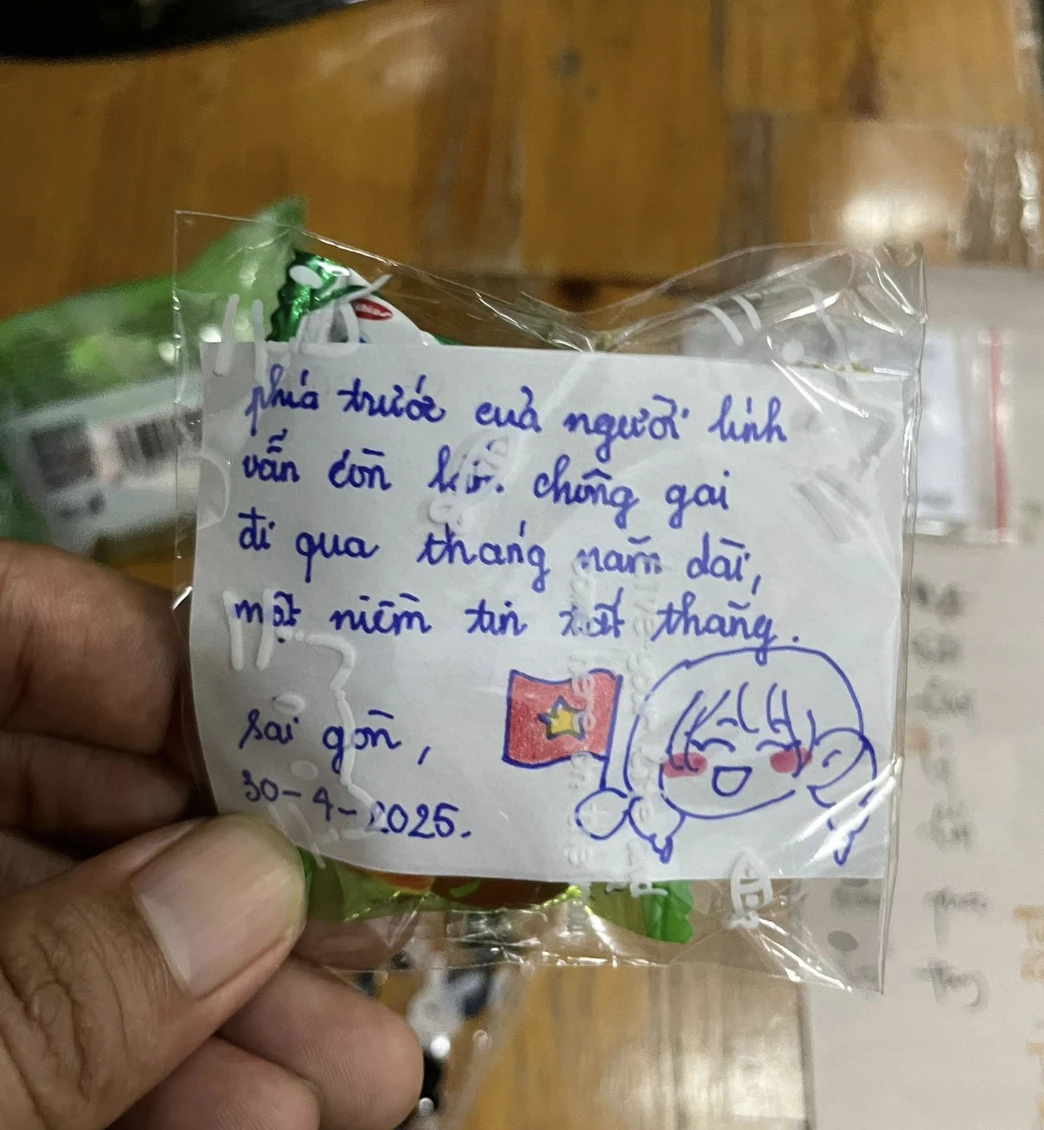 phía trước của người lính
vẫn còn chông gai
đi qua tháng năm dài,
một niềm tin tất thắng.
sài gòn,
30-4-2025.